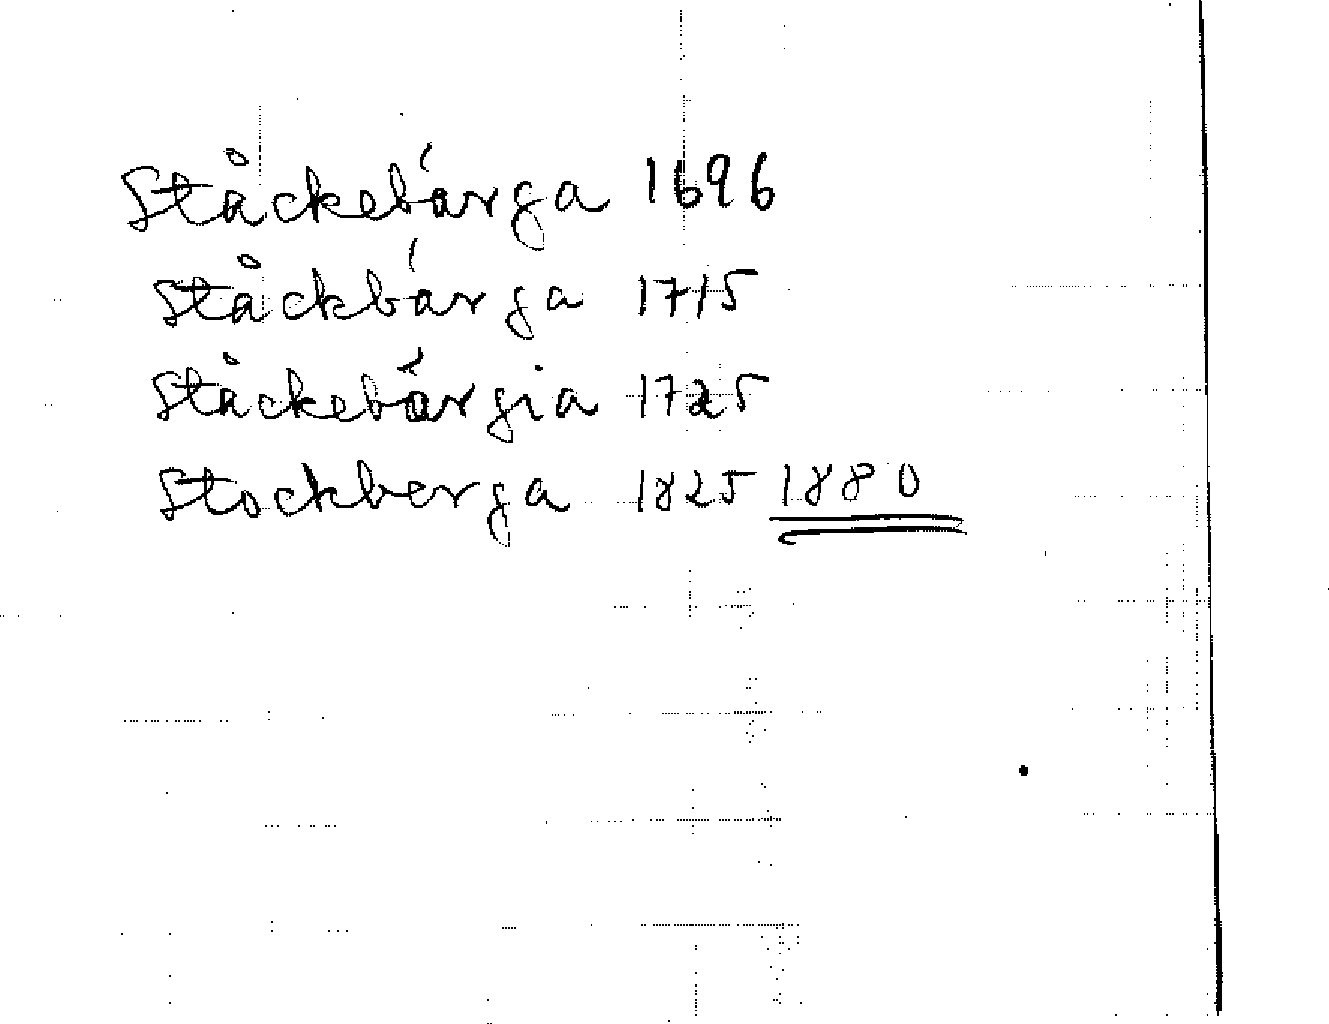 Ståckebárga 1696
Ståckbárga 1715
Ståckebárgia 1725
Stockberga 1825 1880